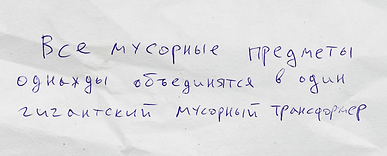 Все мусорные предметы
однажды объединятся в один
гигантский мусорный трансформер